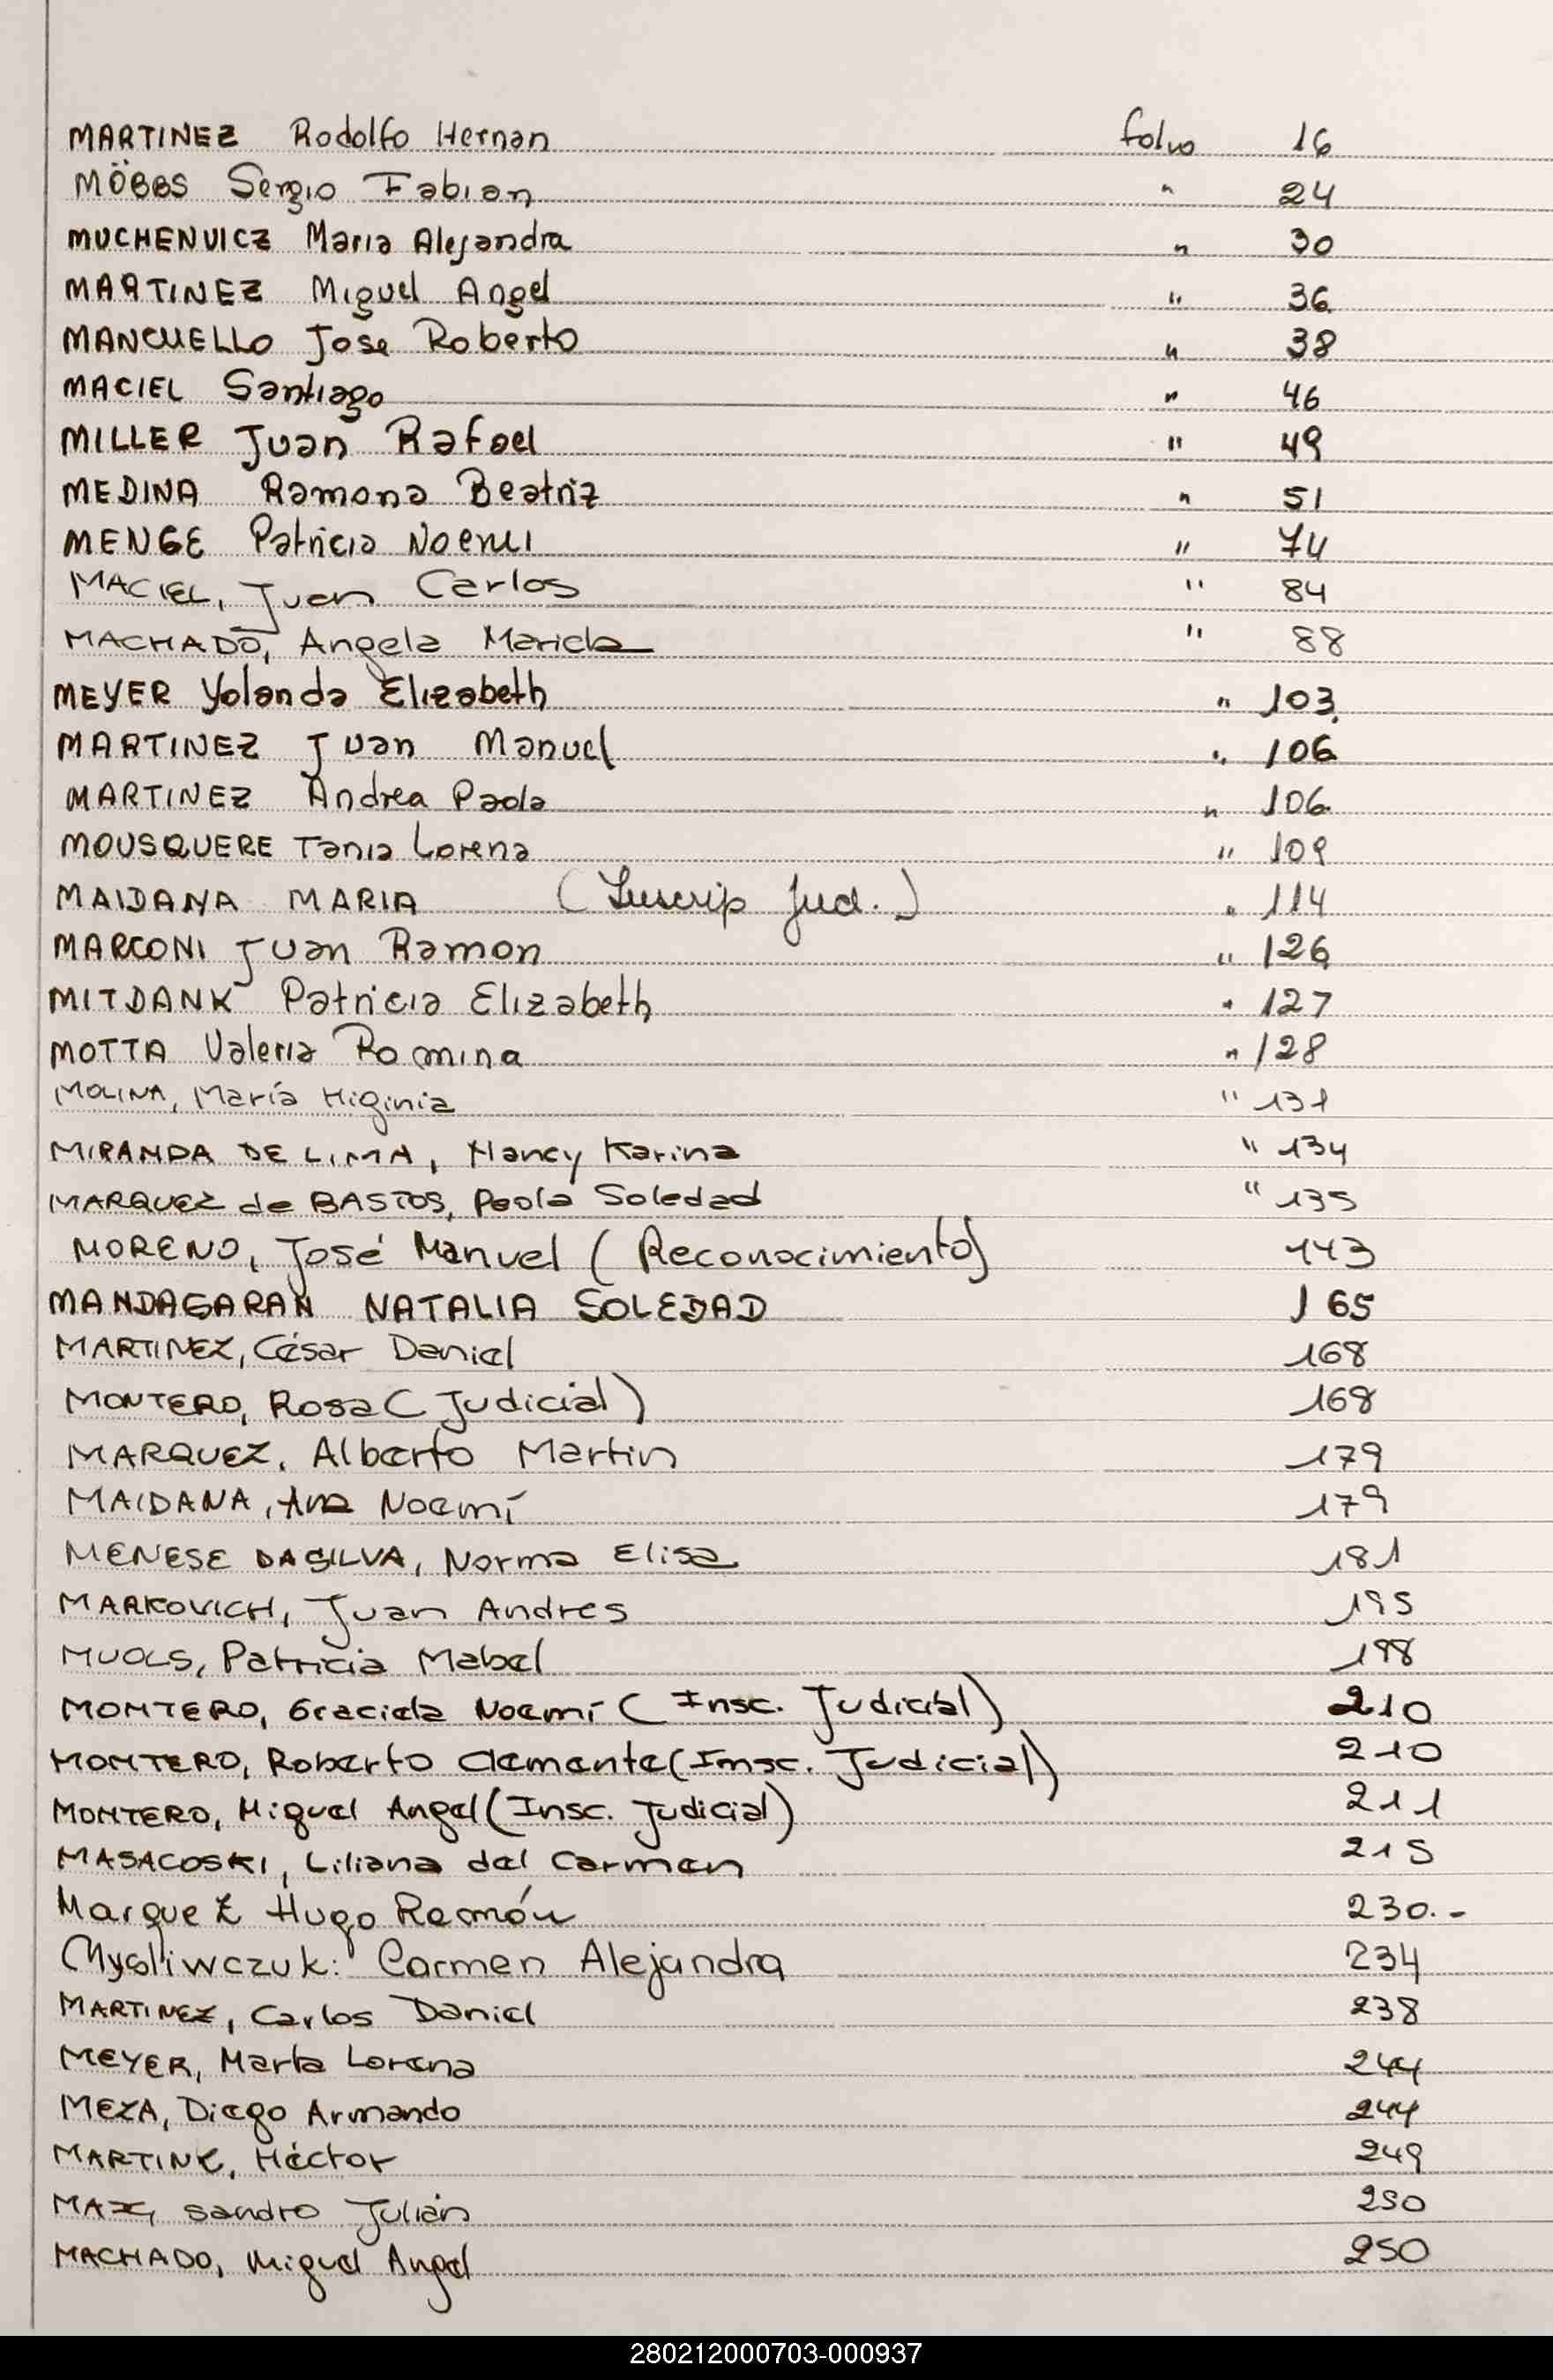 MARTINEZ Rodolfo Hernan folio 16
MÖBBS Sergio Fabian " 24
MUCHENVICZ Maria Alejandra " 30
MARTINEZ Miguel Angel " 36
MANCUELLO Jose Roberto " 38
MACIEL Santiago " 46
MILLER Juan Rafael " 49
MEDINA Ramona Beatriz " 51
MENGE Patricia Noemi " 74
MACIEL, Juan Carlos " 84
MACHADO, Angela Mariela " 88
MEYER Yolanda Elizabeth " 103
MARTINEZ Juan Manuel " 106
MARTINEZ Andrea Paola " 106
MOUSQUERE Tania Lorena " 109
MAIDANA MARIA (Inscrip Jud.) " 114
MARCONI Juan Ramon " 126
MITDANK Patricia Elizabeth " 127
MOTTA Valeria Romina " 128
MOLINA, María Higinia " 131
MIRANDA DE LIMA, Nancy Karina " 134
MARQUEZ de BASTOS, Paola Soledad " 135
MORENO, José Manuel (Reconocimiento) 143
MANDAGARAN NATALIA SOLEDAD 165
MARTINEZ, César Daniel 168
MONTERO, Rosa (Judicial) 168
MARQUEZ, Alberto Martin 179
MAIDANA, Ana Noemí 179
MENESE DASILVA, Norma Elisa 181
MARKOVICH, Juan Andres 195
MUOLS, Patricia Mabel 198
MONTERO, Graciela Noemí (Insc. Judicial) 210
MONTERO, Roberto Clemente (Insc. Judicial) 210
MONTERO, Miguel Angel (Insc. Judicial) 211
MASACOSKI, Liliana del Carmen 215
MarqueZ Hugo Ramón 230.-
Mysliwczuk: Carmen Alejandra 234
MARTINEZ, Carlos Daniel 238
MEYER, Marta Lorena 244
MEZA, Diego Armando 244
Héctor 249
sandro Julián 250
MACHADO, Miguel Angel 250
280212000703-000937